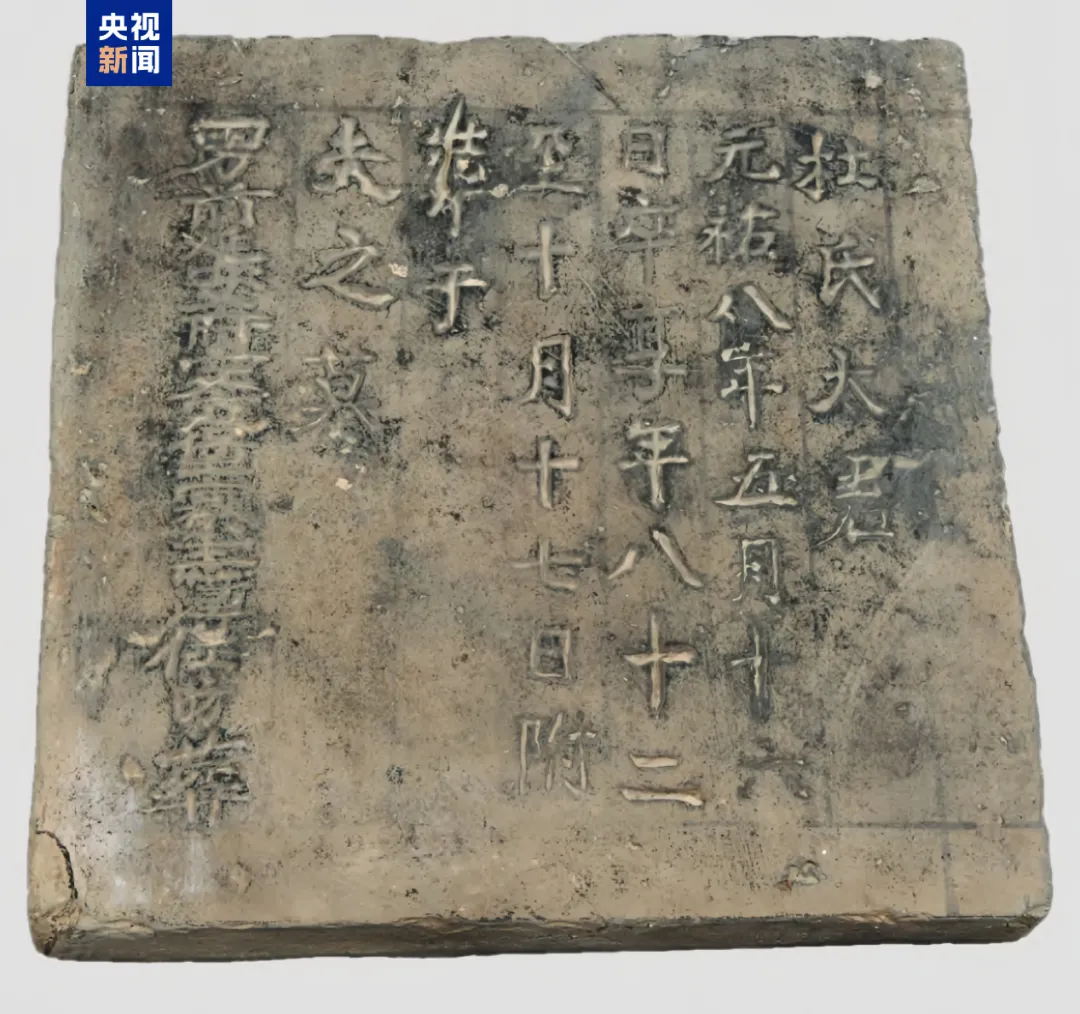 央视
新闻
杜氏大君
元祐八年五月十六
日卒享年八十二
至十月十七日附
葬于
夫之墓